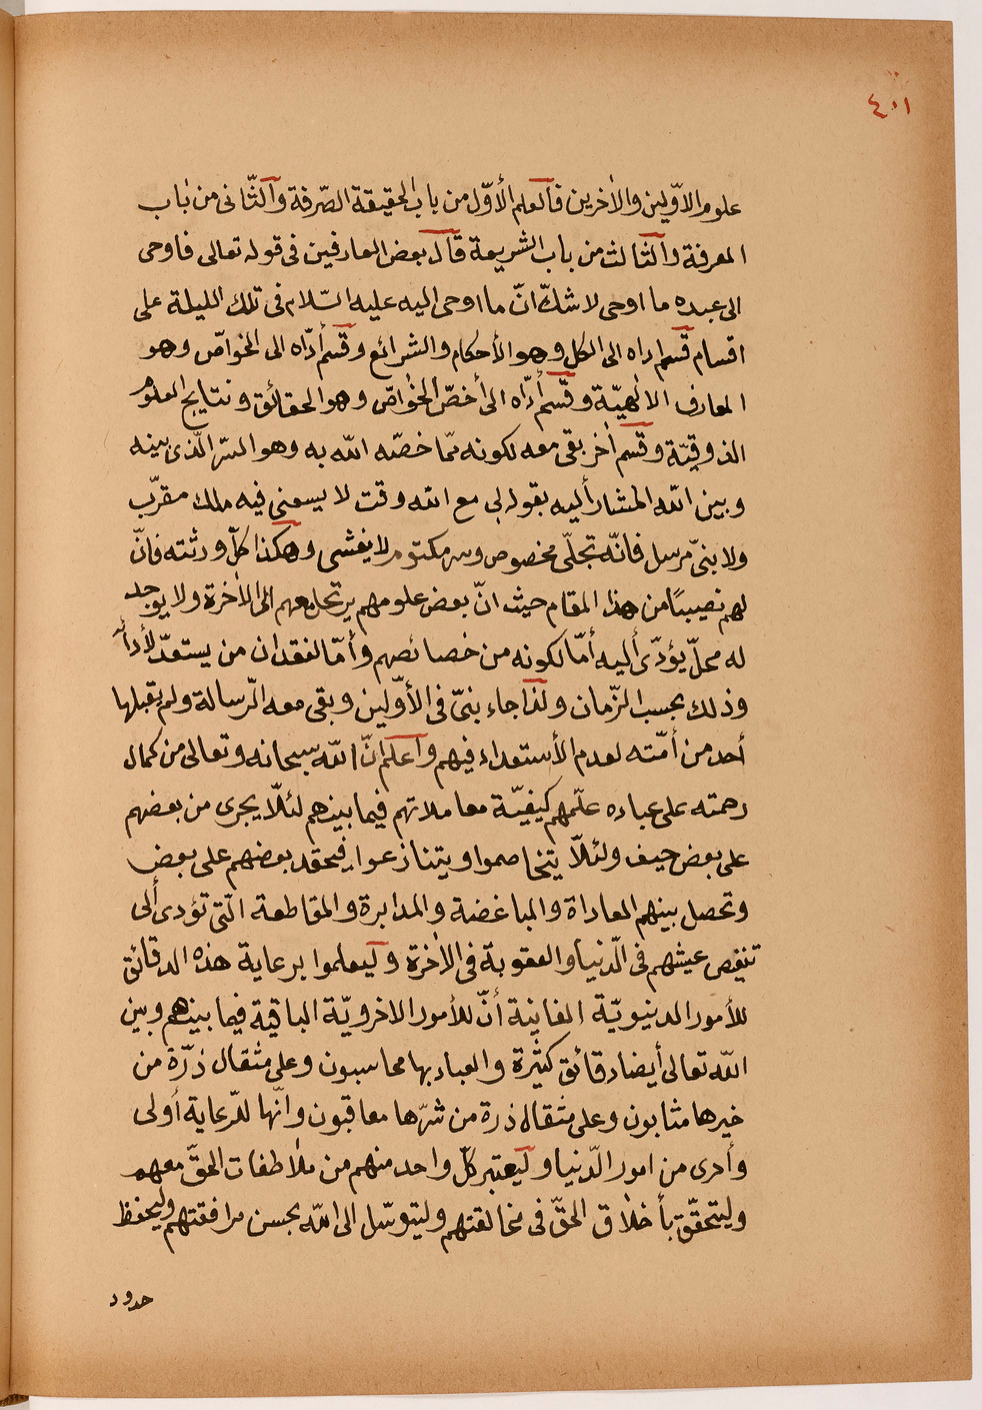 ٤٠١
علوم الاوّلين والاٰخرين فالعلم الأوّل من باب الحقيقة الصّرفة والثّانى من باب
المعرفة والثالث من باب الشريعة قال بعض العارفين فى قوله تعالى فاوحى
الى عبده ما اوحى لا شكّ انّ ما اوحى اليه عليه السّلام فى تلك الليلة على
اقسام قسم اداه الى الكل وهو الأحكام والشرائع وقسم أدّاه الى الخواصّ وهو
المعارف الالٰهيّة وقسم أدّاه الى أخصّ الخواصّ وهو الحقائق ونتايج العلوم
الذوقيّة وقسم اٰخر بقى معه لكونه ممّا خصّه الله به وهو السّر الّذى بينه
وبين الله المشار أليه بقوله لى مع الله وقت لا يسعنى فيه ملك مقرّب
ولا نبىّ مرسل فانّه تجلّى مخصوص وسر مكتوم لا يفشى وهكذا كلّ ورثته فانّ
لهم نصيبًا من هذا المقام حيث انّ بعض علومهم يرتحل معهم الى الاٰخرة ولا يوجد
له محلّ يؤدّى أليه أمّا لكونه من خصائصهم وأمّا لفقدان من يستعدّ لأدائه
وذلك بحسب الزّمان ولذا جاء نبىّ فى الأوّلين وبقى معه الرّسالة ولم يقبلها
أحد من أمّته لعدم الأستعداد فيهم واعلم انّ الله سبحانه وتعالى من كمال
رحمته على عباده علّمهم كيفيّة معاملاتهم فيما بينهم لئلّا يجرى من بعضهم
على بعض حيف ولئلّا يتخاصموا ويتنازعوا فيحقد بعضهم على بعض
وتحصل بينهم المعاداة والمباغضة والمدابرة والمقاطعة الّتى تؤدى ألى
تنغيص عيشهم فى الدّنيا والعقوبة فى الاٰخرة وليعلموا برعاية هذه الدقائق
للأمور الدنيويّة الفانية أنّ للأمور الاخرويّة الباقية فيما بينهم وبين
الله تعالى أيضا دقائق كثيرة والعباد بها محاسبون وعلى مثقال ذرّة من
خيرها مثابون وعلى مثقال ذرة من شرّها معاقبون وانّها للرّعاية أولى
وأحرى من امور الدّنيا وليعتبر كلّ واحد منهم من ملاطفات الحقّ معهم
وليتحقّق بأخلاق الحقّ فى مخالقتهم وليتوسّل الى الله بحسن مرافقتهم وليحفظ
حدود